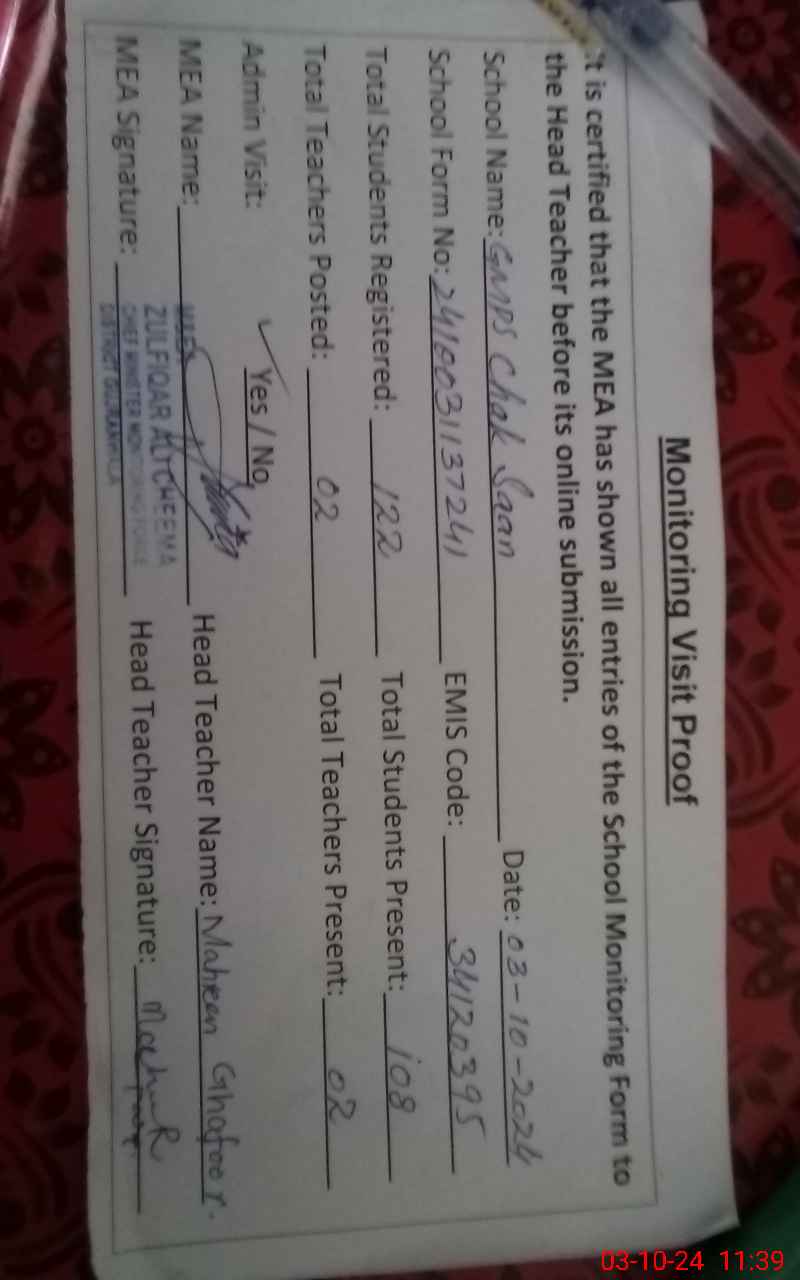 Monitoring Visit Proof
It is certified that the MEA has shown all entries of the School Monitoring Form to
the Head Teacher before its online submission.
School Name: GMPS Chak Saan Date: 03-10-2024
School Form No: 2410031137241 EMIS Code: 34120395
Total Students Registered: 122 Total Students Present: 108
Total Teachers Posted: 02 Total Teachers Present: 02
Admin Visit: ✓ Yes / No
MEA Name: Head Teacher Name: Maheen Ghafoor.
MEA Signature: Head Teacher Signature:
ZULFIQAR ALI CHEEMA
CHIEF MINISTER MONITORING FORCE
DISTRICT GUJRANWALA
03-10-24 11:39